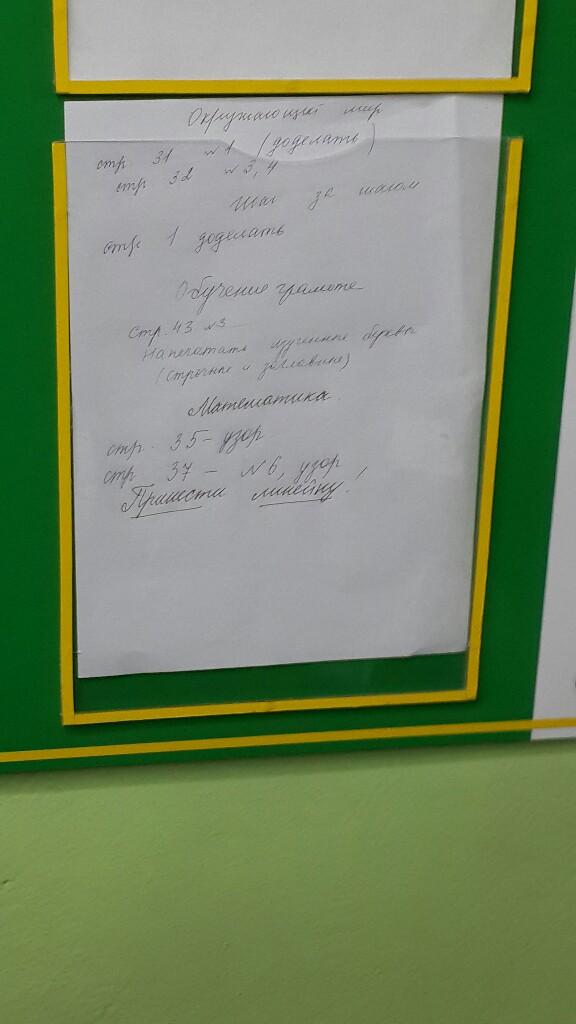 Окружающий мир
стр 31 №1 (доделать)
стр 32 №3, 4
Шаг за шагом
стр 1 доделать
Обучение грамоте
стр. 43 №3
Напечатать изученные буквы
(строчные и заглавные)
Математика.
стр. 35 - узор
стр 37 - №6, узор
Принести линейку!